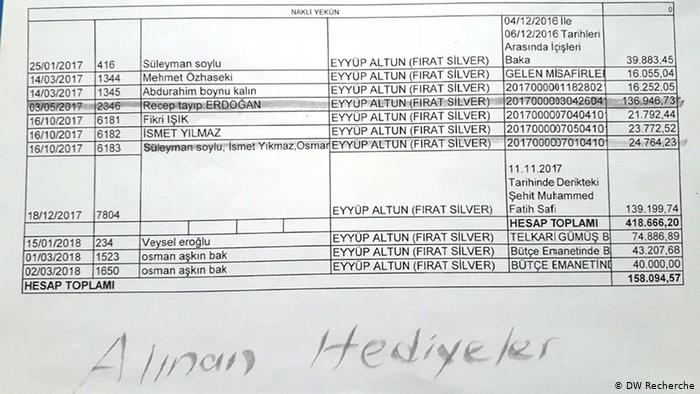 NAKLİ YEKÜN 0
04/12/2016 İle
06/12/2016 Tarihleri
Arasında İçişleri
25/01/2017 416 Süleyman soylu EYYÜP ALTUN (FIRAT SILVER) Baka 39.883,45
14/03/2017 1344 Mehmet Özhaseki EYYÜP ALTUN (FIRAT SILVER) GELEN MİSAFİRLE 16.055,04
14/03/2017 1345 Abdurahim boynu kalın EYYÜP ALTUN (FIRAT SILVER) 2017000001182802 16.252,05
03/05/2017 2346 Recep tayıp ERDOĞAN EYYÜP ALTUN (FIRAT SILVER) 2017000003042604 136.946,73
16/10/2017 6181 Fikri IŞIK EYYÜP ALTUN (FIRAT SILVER) 2017000007040410 21.792,44
16/10/2017 6182 İSMET YILMAZ EYYÜP ALTUN (FIRAT SILVER) 2017000007050410 23.772,52
16/10/2017 6183 Süleyman soylu, İsmet Yıkmaz,Osmar EYYÜP ALTUN (FIRAT SILVER) 2017000007010410 24.764,23
11.11.2017
Tarihinde Derikteki
Şehit Muhammed
18/12/2017 7804 EYYÜP ALTUN (FIRAT SILVER) Fatih Safi 139.199,74
HESAP TOPLAMI 418.666,20
15/01/2018 234 Veysel eroğlu EYYÜP ALTUN (FIRAT SILVER) TELKARİ GÜMÜŞ B 74.886,89
01/03/2018 1523 osman aşkın bak EYYÜP ALTUN (FIRAT SILVER) Bütçe Emanetinde B 43.207,68
02/03/2018 1650 osman aşkın bak EYYÜP ALTUN (FIRAT SILVER) BÜTÇE EMANETİND 40.000,00
HESAP TOPLAMI 158.094,57
Alınan Hediyeler
© DW Recherche